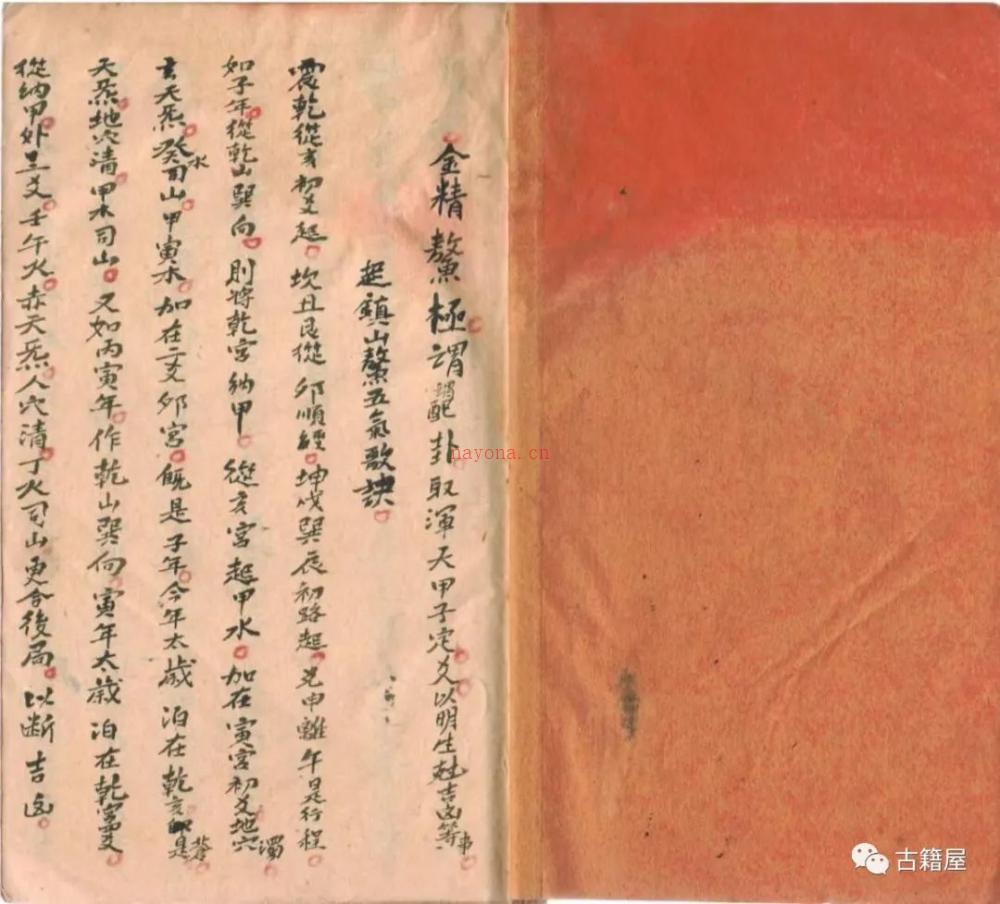 金精鰲極謂配卦取渾天甲子定爻以明生尅吉凶等事
起鎮山鰲五氣歌訣
震乾從亥初爻起坎丑艮從卯順經坤戌巽辰初路起兑申離午是行程
如子年從乾山巽向則將乾宮納甲從亥宮起甲水加在寅宮初爻地穴濁
玄天炁癸水司山甲寅木加在二爻卯宮既是子年今年太歲泊在乾亥是蒼
天炁地穴清甲木司山又如丙寅年作乾山巽向寅年太歲泊在乾宮爻
從納甲外三爻壬午火赤天炁人穴清丁火司山更合後局以断吉凶
nayona.cn
古籍屋